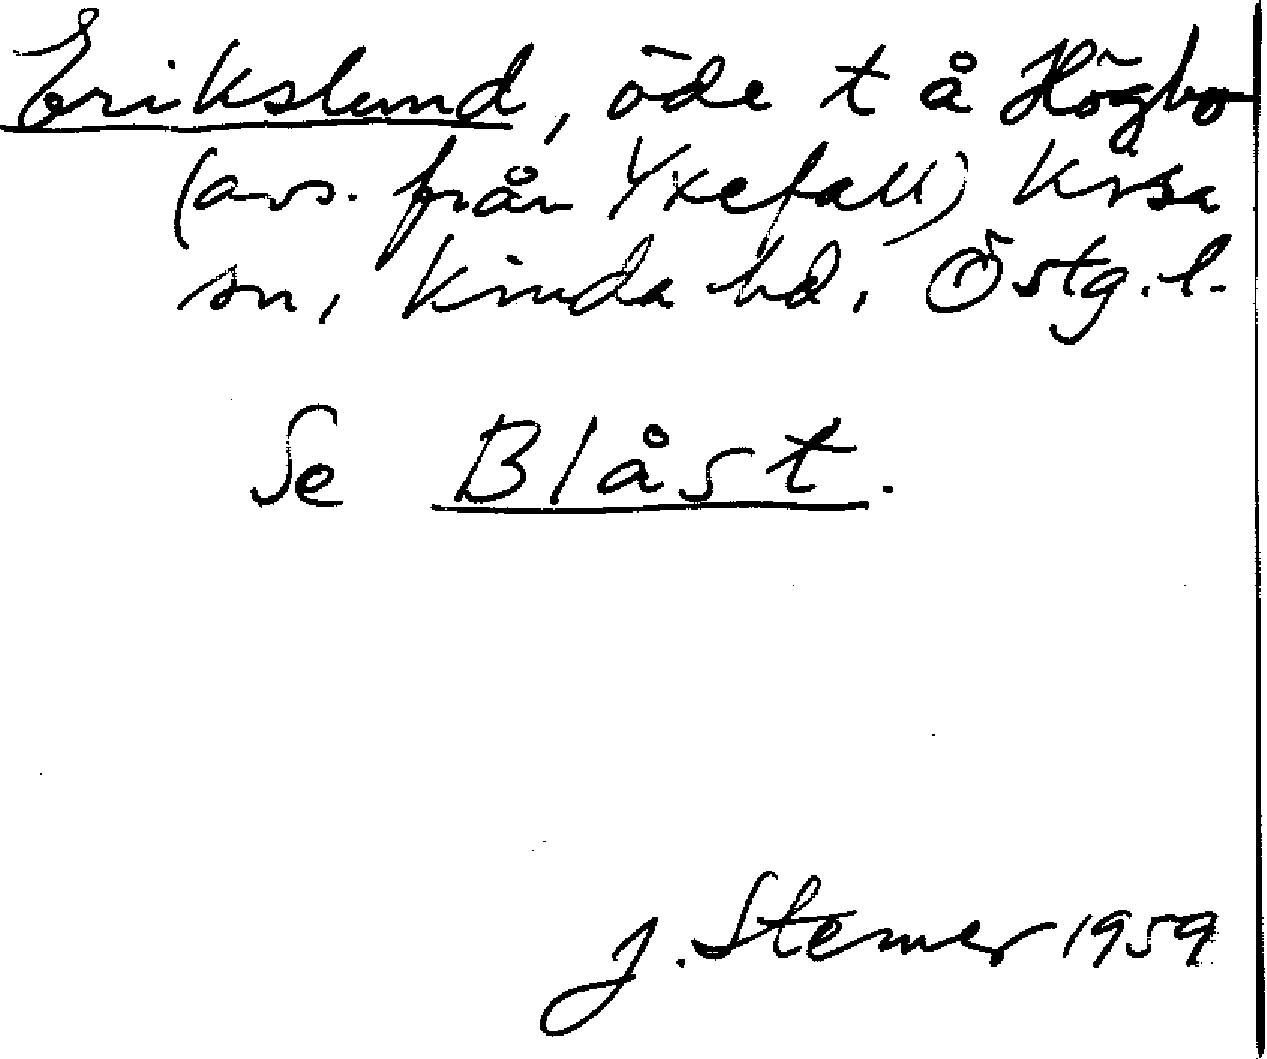 Erikslund, öde t å Högbo
(avs. från Yxefall) Kisa
sn, Kinda hd, Östg. l.
Se Blåst.
J. Sterner 1959